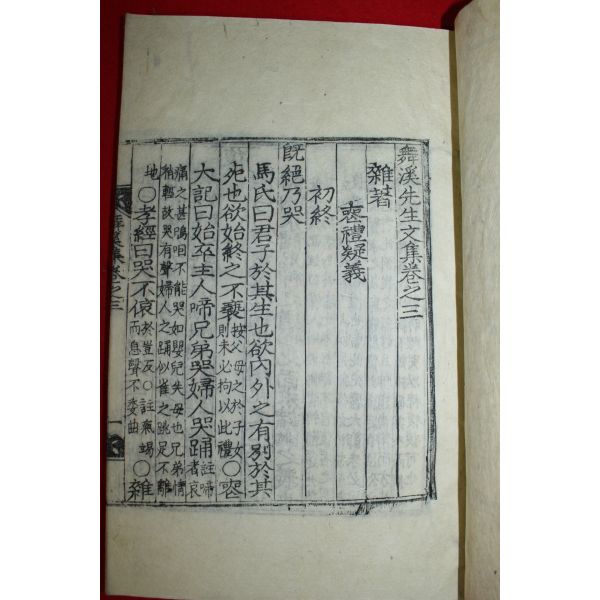 舞溪先生文集卷之三
雜著
喪禮疑義
初終
旣絕乃哭
馬氏曰君子於其生也欲內外之有別於其
死也欲始終之不褻按父母之於子女則未必拘以此禮○喪
大記曰始卒主人啼兄弟哭婦人哭踊註啼者哀
痛之甚嗚咽不能哭如嬰兒失母也兄弟情
稍輕故哭有聲婦人之踊似雀之跳足不離
地○孝經曰哭不偯於豈反○註氣竭而息聲不委曲○雜
舞溪集卷之三
一